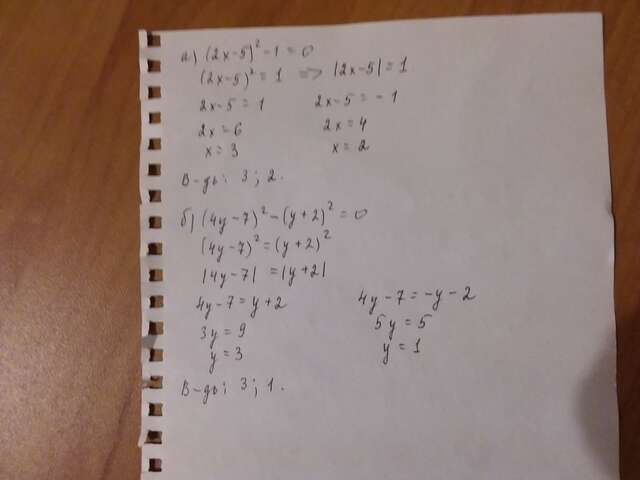 а) (2x-5)² - 1 = 0
(2x-5)² = 1 => |2x-5| = 1.
2x-5 = 1 2x-5 = -1
2x = 6 2x = 4
x = 3 x = 2
В-дь: 3; 2.
б) (4y-7)² - (y+2)² = 0
(4y-7)² = (y+2)²
|4y-7| = |y+2|
4y-7 = y+2 4y-7 = -y-2
3y = 9 5y = 5
y = 3 y = 1
В-дь: 3; 1.